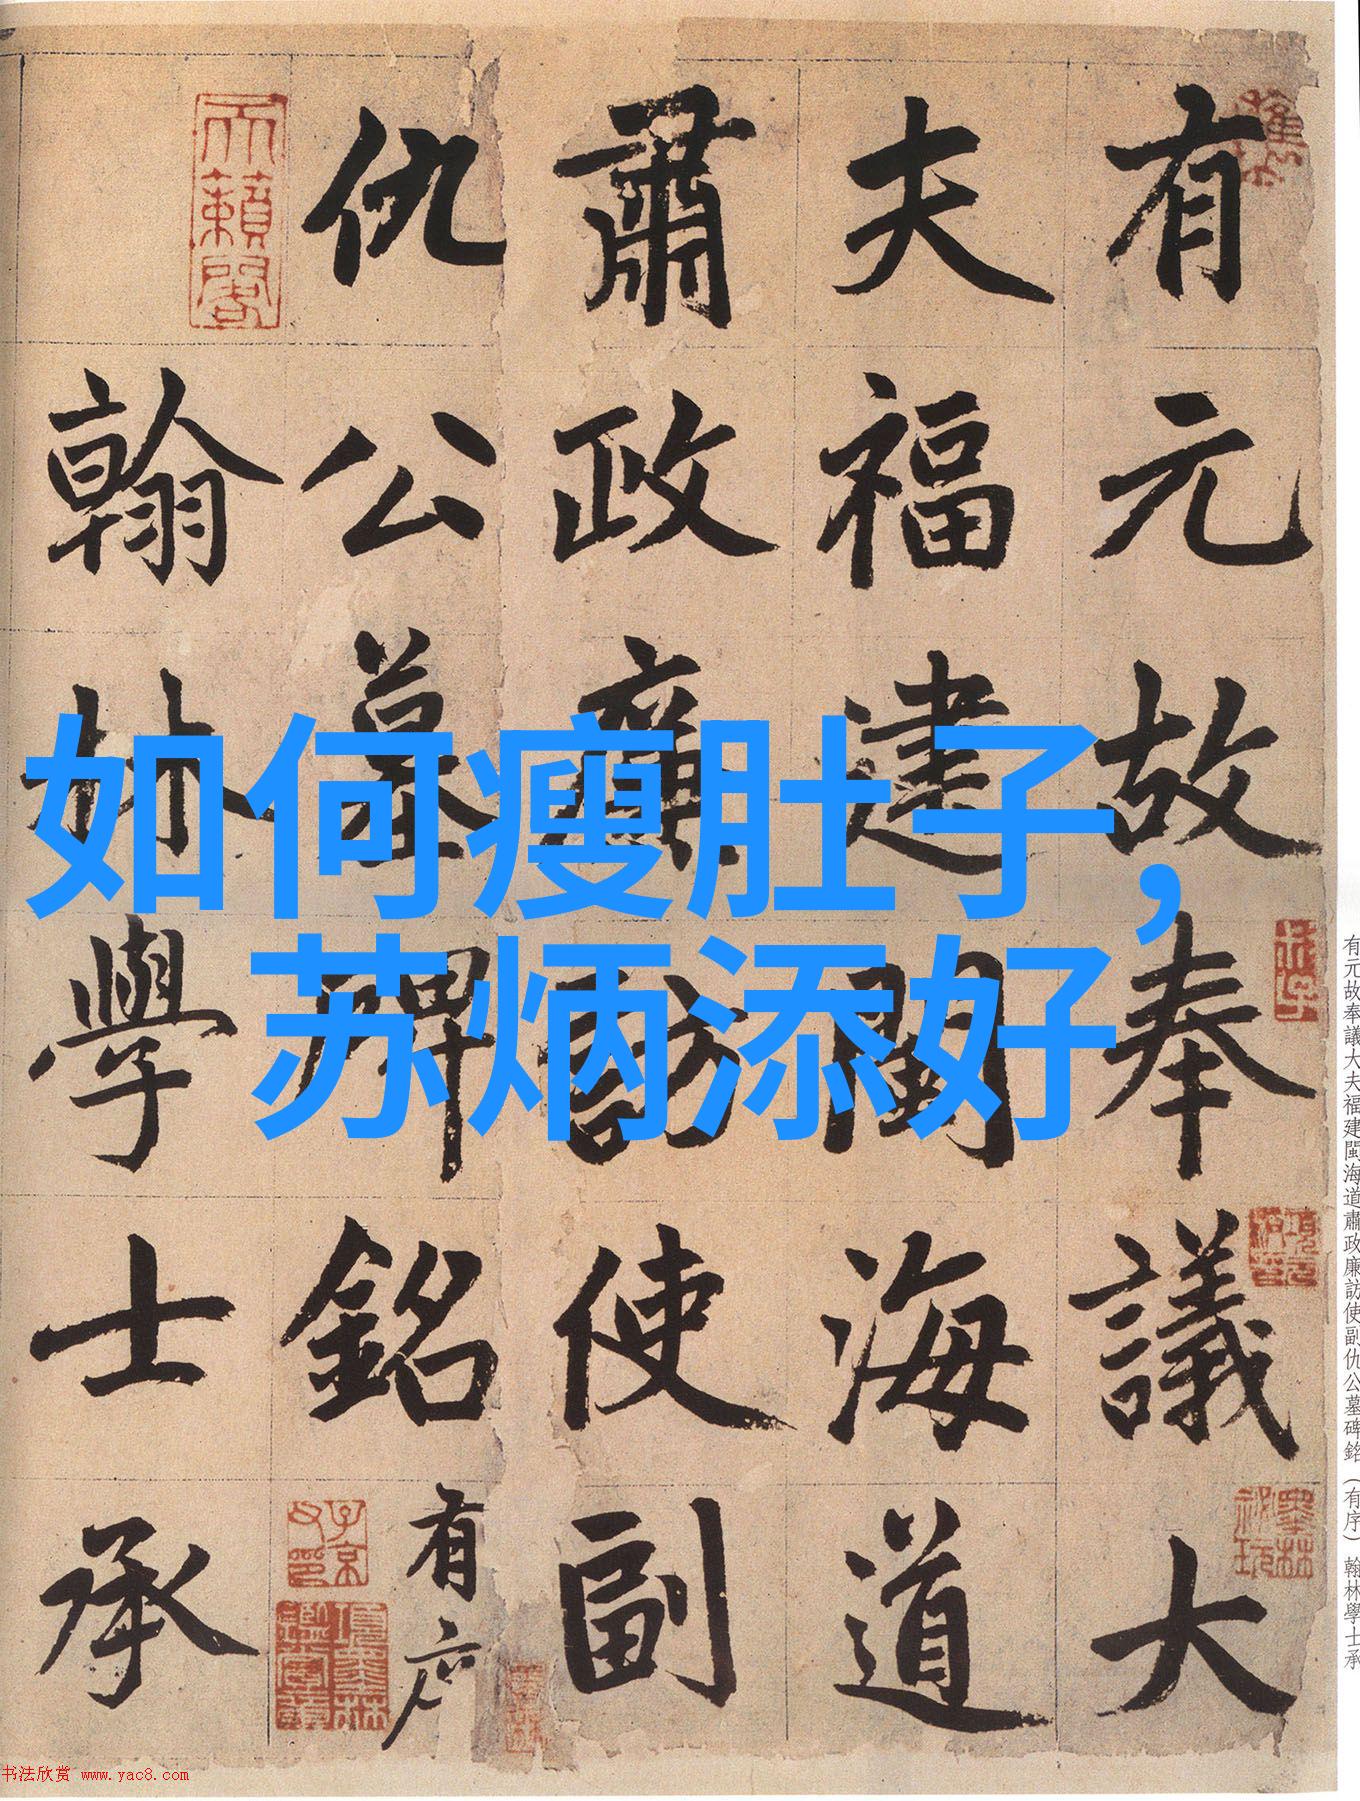 有元故奉議大
夫福建閩海道
肅政廉訪使副
仇公墓碑銘有序
翰林學士承
天籟閣
如何瘦肚子,
苏炳添好
有元故奉議大夫福建閩海道肅政廉訪使副仇公墓碑銘(有序) 翰林學士承
子京父印
书法欣赏 www.yac8.com